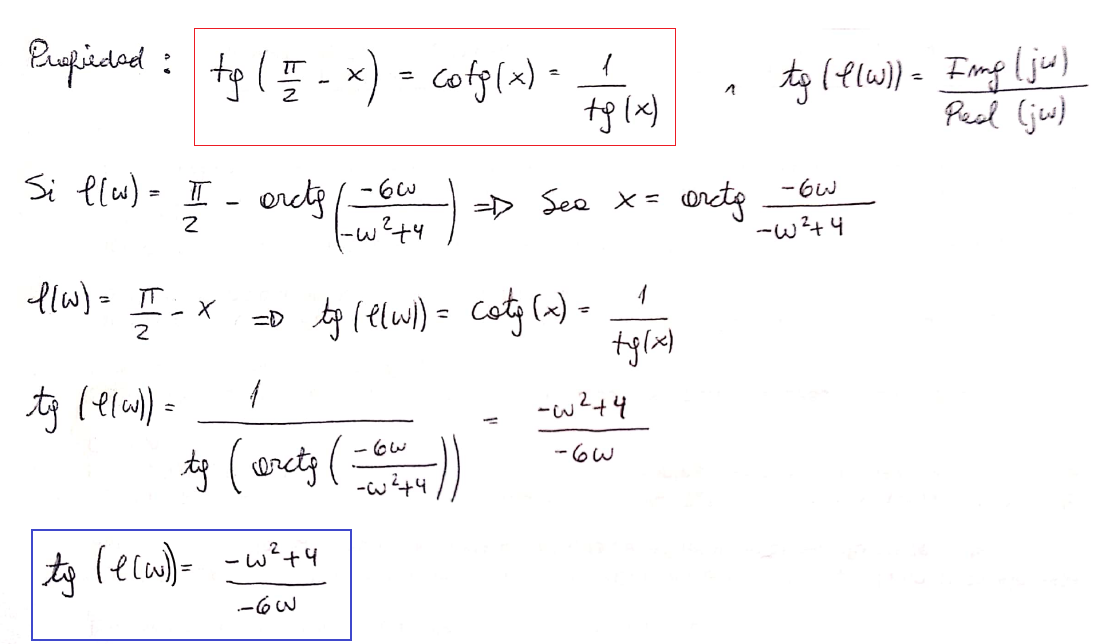 Propiedad : tg ( π/2 - x ) = cotg(x) = 1/tg(x) ∧ tg (φ(ω)) = Img (jω)/Real (jω)
Si φ(ω) = π/2 - arctg (-6ω/-ω²+4) => Sea x = arctg -6ω/-ω²+4
φ(ω) = π/2 - x => tg (φ(ω)) = cotg (x) = 1/tg(x)
tg (φ(ω)) = 1/tg ( arctg ( -6ω/-ω²+4 )) = -ω²+4/-6ω
tg (φ(ω)) = -ω²+4/-6ω